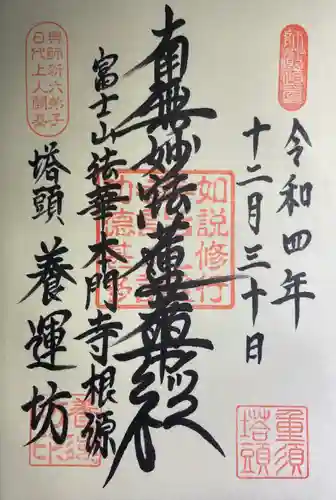 令和四年
十二月三十日
南無妙法蓮華経
富士山法華本門寺根源
塔頭 養運坊
如説修行
功徳甚多
重須
塔頭
興師新六弟子
日代上人開基